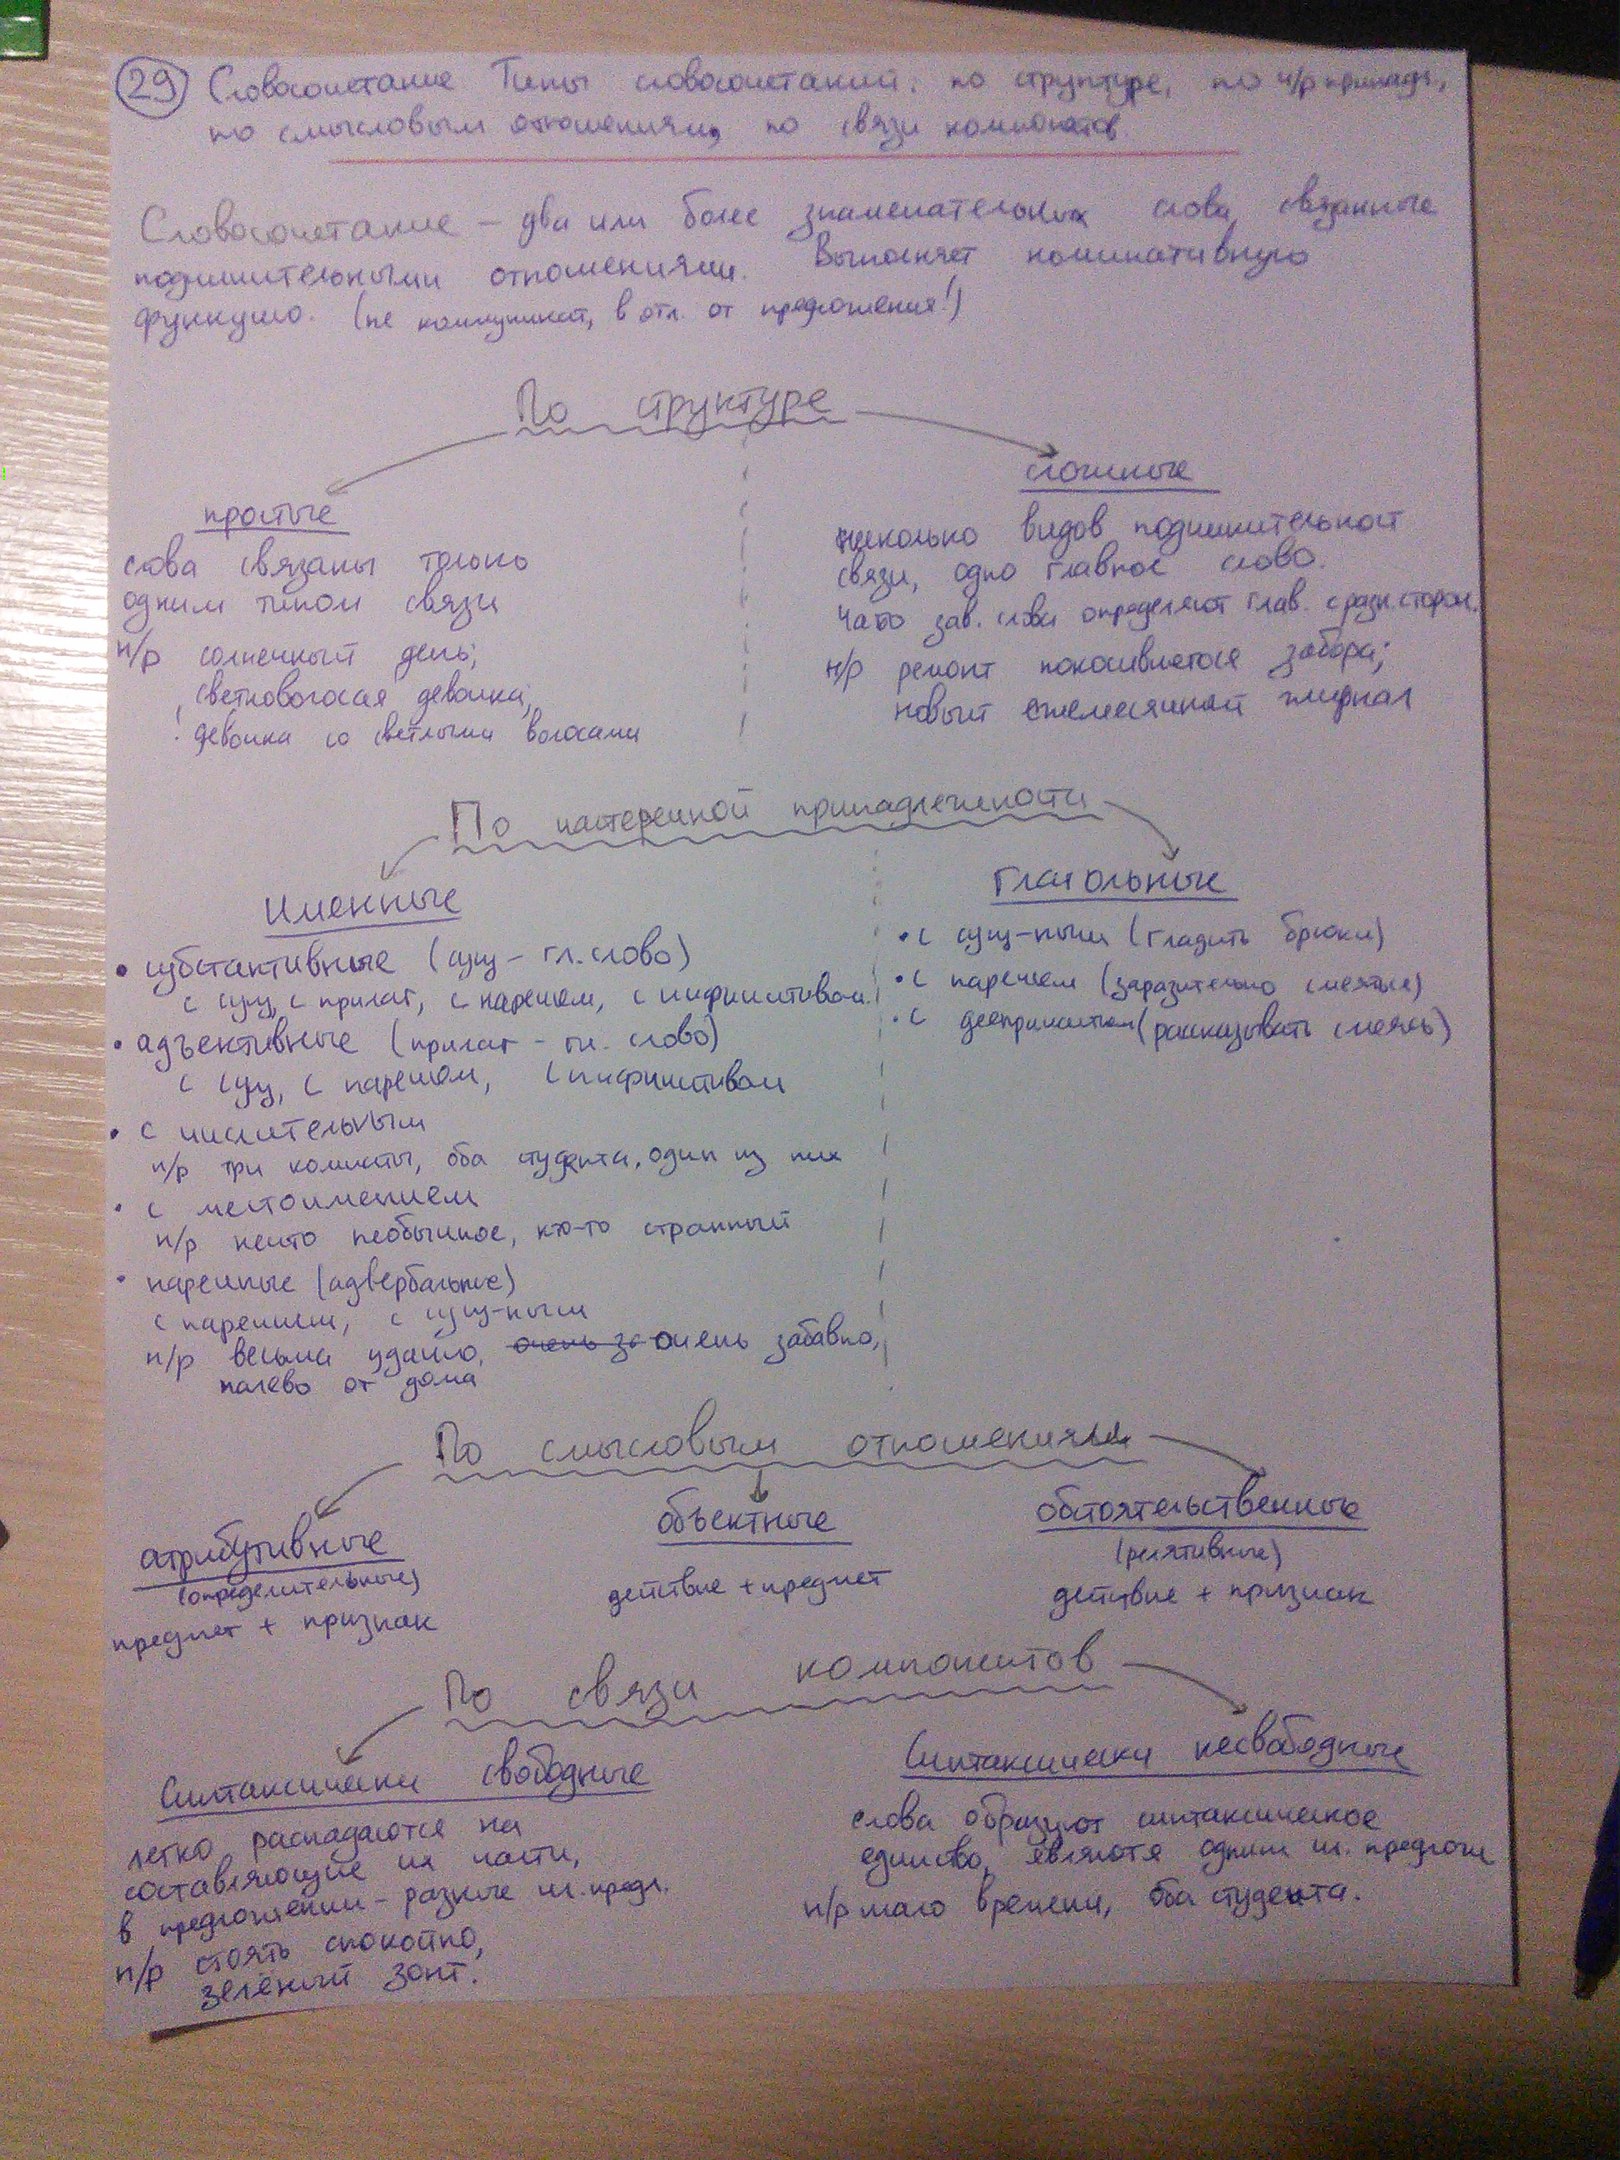 29 Словосочетание Типы словосочетаний: по структуре, по ч/р принадл.,
по смысловым отношениям, по связи компонентов.
Словосочетание – два или более знаменательных слова, связанные
подчинительными отношениями. Выполняет номинативную
функцию. (не коммуникат, в отл. от предложения!)
По структуре
простые
слова связаны только
одним типом связи
н/р солнечный день;
светловолосая девочка;
! девочка со светлыми волосами
сложные
несколько видов подчинительной
связи, одно главное слово.
Часто зав. слова определяют глав. с разн. сторон.
н/р ремонт покосившегося забора;
новый ежемесячный журнал
По частеречной принадлежности
Именные
• субстантивные (сущ – гл. слово)
с сущ, с прилаг, с наречием, с инфинитивом.
• адъективные (прилаг – гл. слово)
с сущ, с наречием, с инфинитивом
• с числительным
н/р три комнаты, оба студента, один из них
• с местоимением
н/р нечто необычное, кто-то странный
• наречные (адвербальные)
с наречием, с сущ-ным
н/р весьма удачно, очень за очень забавно,
налево от дома
глагольные
• с сущ-ным (гладить брюки)
• с наречием (заразительно смеяться)
• с деепричастием (рассказывать смеясь)
По смысловым отношениям
атрибутивные
(определительные)
предмет + признак
объектные
действие + предмет
обстоятельственные
(релятивные)
действие + признак
По связи компонентов
Синтаксически свободные
легко распадаются на
составляющие их части,
в предложении – разные чл. предл.
н/р стоять спокойно,
зелёный зонт.
Синтаксически несвободные
слова образуют синтаксическое
единство, являются одним чл. предлож
н/р мало времени, оба студента.